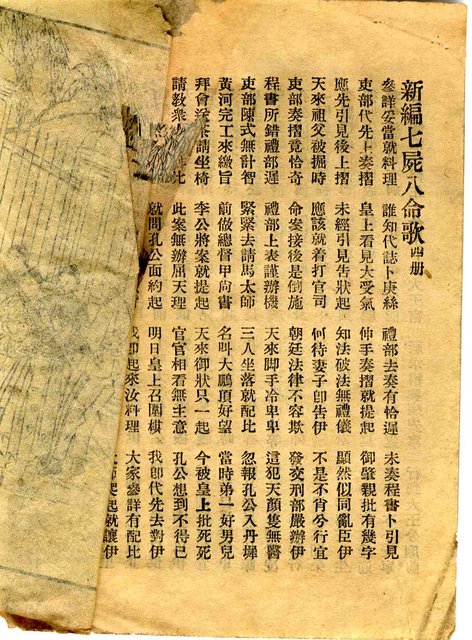 新編七屍八命歌 四册
參詳妥當就料理 誰知代誌卜庚絲 禮部去奏有恰遲 未奏程書卜引見
吏部代先上奏摺 皇上看見大受氣 伸手奏摺就提起 御肇親批有幾字
應先引見後上摺 未經引見告狀起 知法破法無禮儀 顯然似同亂臣伊
天來祖父被掘時 應該就着打官司 何待妻子卽告伊 不是不肖兮行宜
吏部奏摺竟恰奇 命案接後是倒施 朝廷法律不容欺 發交刑部嚴辦伊
程書所錯禮部遲 禮部上表謹辦機 天來脚手冷卑卑 這犯天顏隻無醫
吏部陳式無計智 緊緊去請馬太師 三人坐落就配比 忽報孔公入丹墀
黃河完工來繳旨 前做總督甲尚書 名叫大鵬頂好望 當時弟一好男兒
拜會茶請坐椅 李公將案就提起 天來御狀只一起 今被皇上批死死
請教衆比 此案無辦屈天理 官官相看無主意 孔公想到不得已
就問孔公面約起 明日皇上召圍棋 我卽代先去對伊
卽起來汝料理 大家參詳有配比
起就讓伊